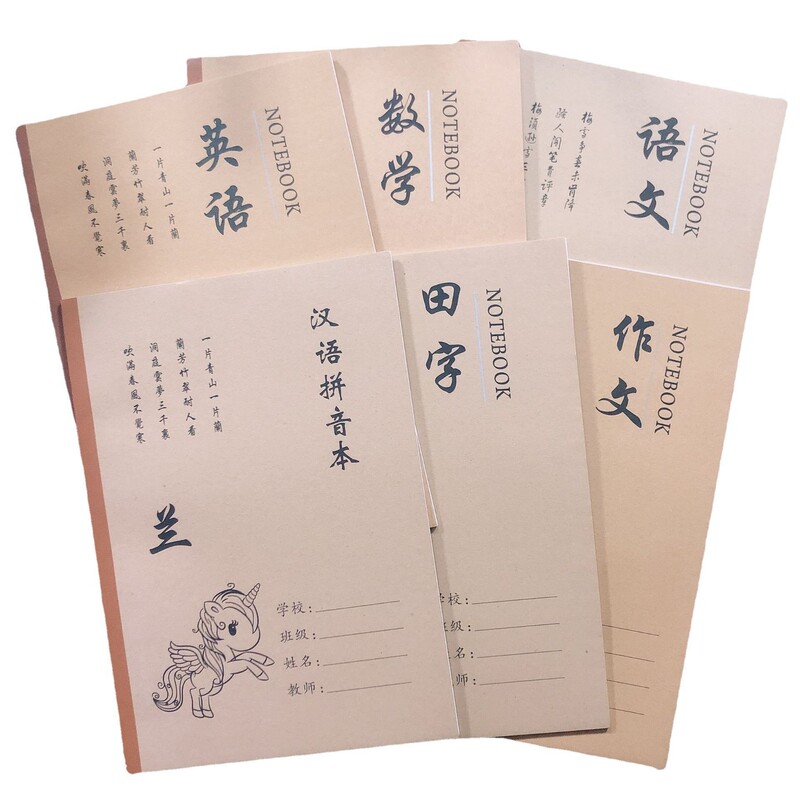 英语
NOTEBOOK
一片青山一片蘭
蘭芳竹翠耐人看
洞庭雲夢三千裏
吹滿春風不覺寒
数学
NOTEBOOK
语文
NOTEBOOK
梅雪争春未肯降
骚人阁笔费评章
梅须逊雪三
汉语拼音本
一片青山一片蘭
蘭芳竹翠耐人看
洞庭雲夢三千裏
吹滿春風不覺寒
兰
学校:
班级:
姓名:
教师:
田字
NOTEBOOK
学校:
班级:
姓名:
教师:
作文
NOTEBOOK